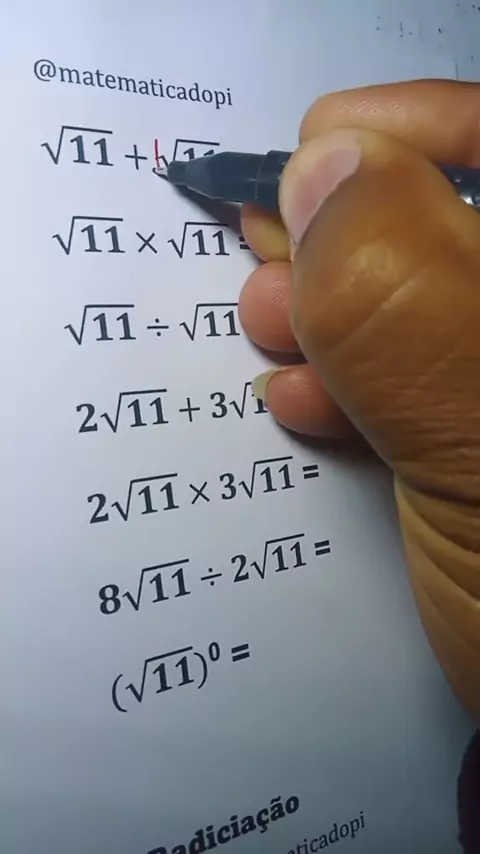 @matematicadopi
√11 + 1√11
√11 × √11 =
√11 ÷ √11
2√11 + 3√1
2√11 × 3√11 =
8√11 ÷ 2√11 =
(√11)⁰ =
Radiciação
maticadopi